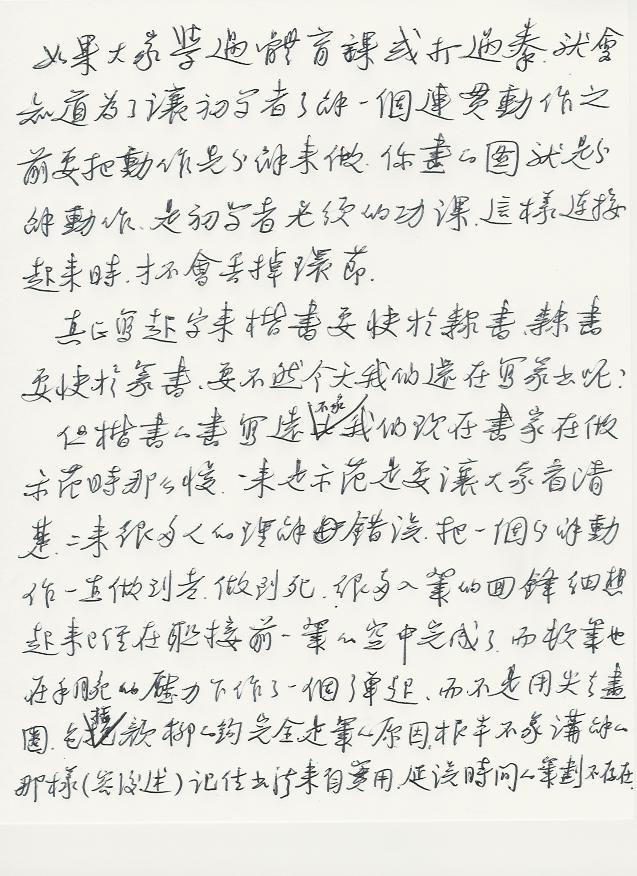 如果大家學過體育課或打過拳.就會
知道為了讓初学者了解一個連贯動作之
前要把動作先分解來做.你畫的图就是分
解動作、是初学者必须的功课.這樣连接
起来時.才不會丢掉環節.
真正写起字来楷書要快於隸書、隸書
要快於篆書、要不然今天我们還在写篆书呢?
但楷書的書写遠不象我们现在書家在做
示范時那么慢.一来是示范是要讓大家看清
楚.二来很多人的理解錯误.把一個分解動
作一直做到老.做到死.很多入筆的回鋒細想
起来已經在联接前一筆的空中完成了.而软筆也
在手腕的壓力下作了一個了弹起、而不是用尖去畫
圈.包括颜柳的鈎完全是筆的原因.根本不象講解的
那樣(容後述)记住书法来自實用.延误時间的筆劃不存在.